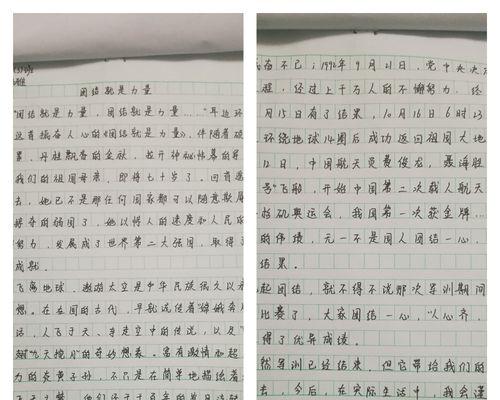 团结就是力量
"团结就是力量，团结就是力量……"耳边环
这首振奋人心的《团结就是力量》，伴随着硕
累，丹桂飘香的金秋，拉开神秘帷幕的
我们的祖国母亲，即将七十岁了。回首过
去，她已不是那任何国家都可以随意欺
的弱国了，她以惊人的速度和人民的
努力，发展成了世界第二大强国，取得了
成就。
飞离地球，遨游太空是中华民族很久以
想。在我国的古代，早就流传着"嫦娥奔
话，人飞于天，车走空中的传说，以及"
"九天揽月"的奇妙想象。富有激情和
力的炎黄子孙，不只是在简单地描绘着
不已；1992年9月21日，党中央决
程，经过上千万人的不懈努力，终
月15日有了结果，10月16日6时23
环绕地球14圈后成功返回祖国大地
12日，中国航天员费俊龙、聂海胜
号"飞船，开始中国第二次载人航天
杉矶奥运会，我国第一次获金牌……
的伟绩，无一不是国人团结一心，
结果。
起团结，就不得不说那次军训期间
比赛了，大家团结一心，"人心齐，
得了优异成绩。
然军训已经结束，但它带给我们的
去，今后，在实际生活中，我会谨